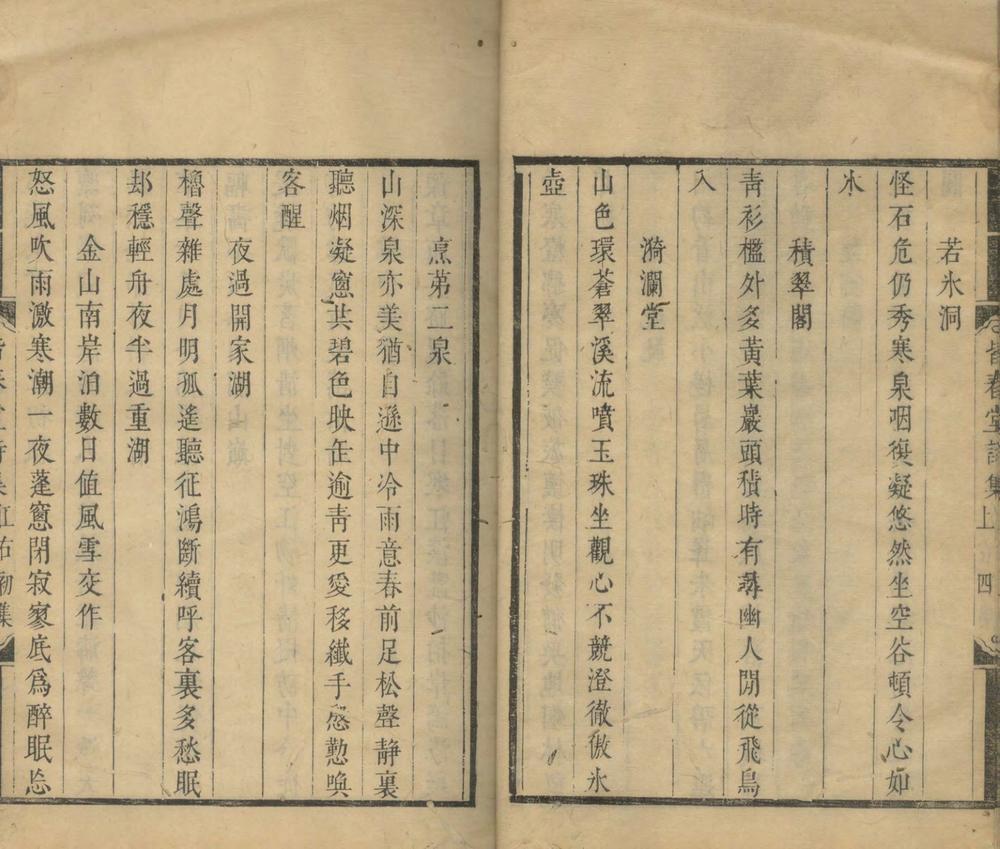 若氷洞
怪石危仍秀寒泉咽復凝悠然坐空谷頓令心如
氷
積翠閣
青衫檻外多黃葉巖頭積時有尋幽人閒從飛鳥
入
漪瀾堂
山色環蒼翠溪流噴玉珠坐觀心不競澄徹倣氷
壺
皆春堂詩集上
四
烹第二泉
山深泉亦美猶自遜中冷雨意春前足松聲静裏
聽烟凝窻共碧色映缶逾青更愛移纖手慇懃喚
客醒
夜過開家湖
櫓聲雜處月明孤遙聽征鴻斷續呼客裏多愁眠
却穩輕舟夜半過重湖
金山南岸泊數日值風雪交作
怒風吹雨激寒潮一夜蓬窻閉寂寥底爲醉眠忘
皆春堂詩集江右初集